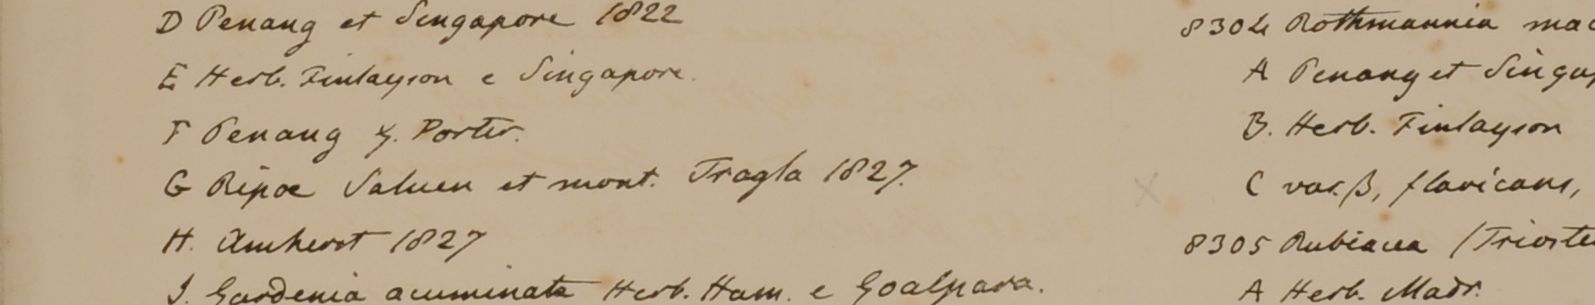 D Penang et Singapore 1822
E Herb. Finlayson e Singapore.
F Penang G. Porter.
G Ripoe Saluen et mont. Tragla 1827.
H. Amherst 1827
I. Gardenia acuminata Herb. Ham. e Goalpara.
8304 Rothmannia mac
A Penang et Singap
B. Herb. Finlayson
C var. β, flavicans,
8305 Rubiacea (Trioste
A Herb. Madr.